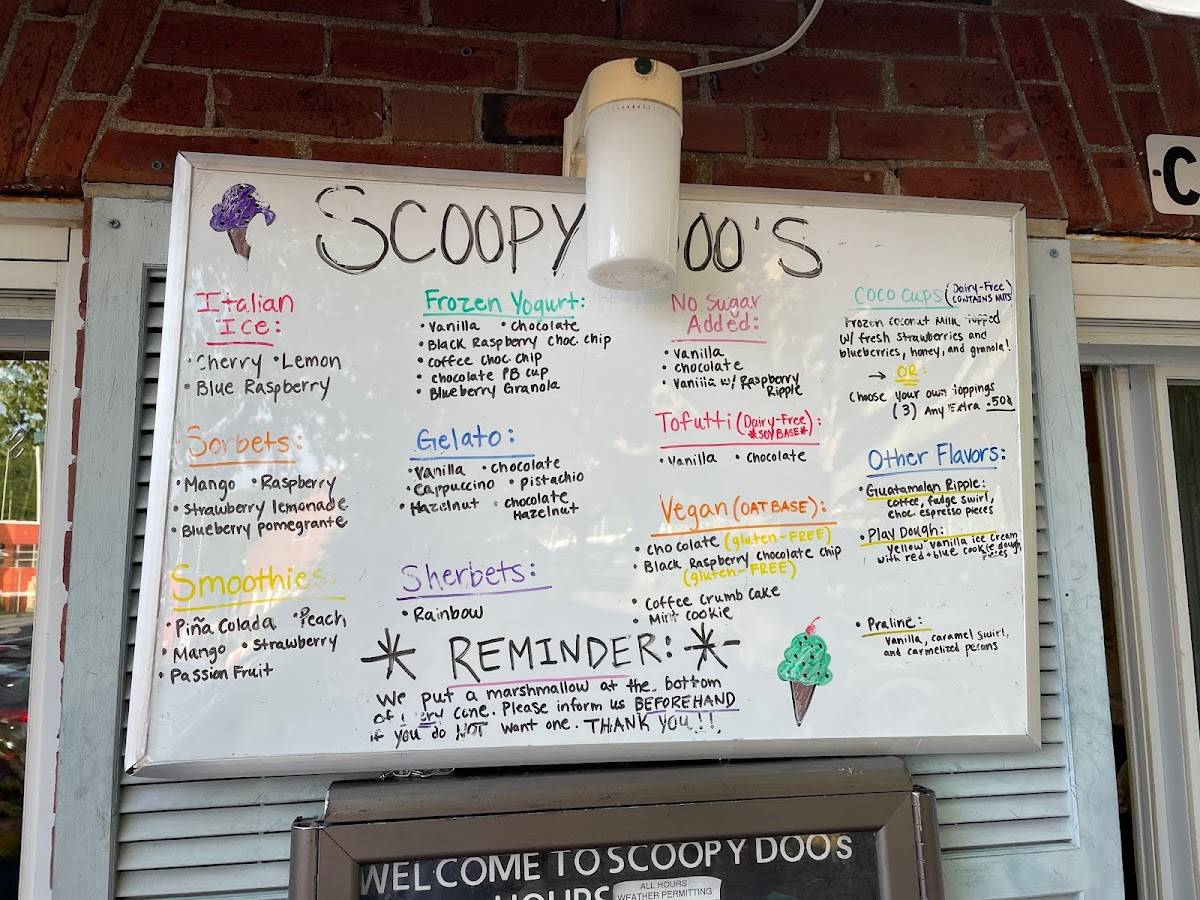 SCOOPY DOO'S
Italian
Ice:
• Cherry • Lemon
• Blue Raspberry
Sorbets:
• Mango • Raspberry
• Strawberry lemonade
• Blueberry pomegrante
Smoothies
• Piña Colada • Peach
• Mango • Strawberry
• Passion Fruit
Frozen Yogurt:
• Vanilla • chocolate
• Black Raspberry choc. chip
• coffee choc. chip
• chocolate PB cup
• Blueberry Granola
Gelato:
• Vanilla • chocolate
• Cappuccino • Pistachio
• Hazelnut • chocolate
Hazelnut
Sherbets:
• Rainbow
No Sugar
Added:
• Vanilla
• chocolate
• Vanilla w/ Raspberry
Ripple
Tofutti (Dairy-Free):
*SOY BASE*
• Vanilla • chocolate
Vegan (OAT BASE):
• chocolate (gluten-FREE)
• Black Raspberry chocolate chip
(gluten-FREE)
• Coffee Crumb Cake
• Mint Cookie
COCO CUPS (Dairy-Free
CONTAINS NUTS)
Frozen coconut milk topped
w/ fresh strawberries and
blueberries, honey, and granola!
→ OR:
Choose your own toppings
(3) Any Extra .50¢
Other Flavors:
• Guatamalan Ripple:
coffee, fudge swirl,
choc. espresso pieces
• Play Dough:
yellow vanilla ice cream
with red + blue cookie dough
pieces
• Praline:
Vanilla, caramel swirl,
and carmelized pecans
* REMINDER: *
We put a marshmallow at the bottom
of every cone. Please inform us BEFOREHAND
if you do NOT want one. THANK YOU!!
WELCOME TO SCOOPY DOO'S
HOURS
ALL HOURS
WEATHER PERMITTING
C